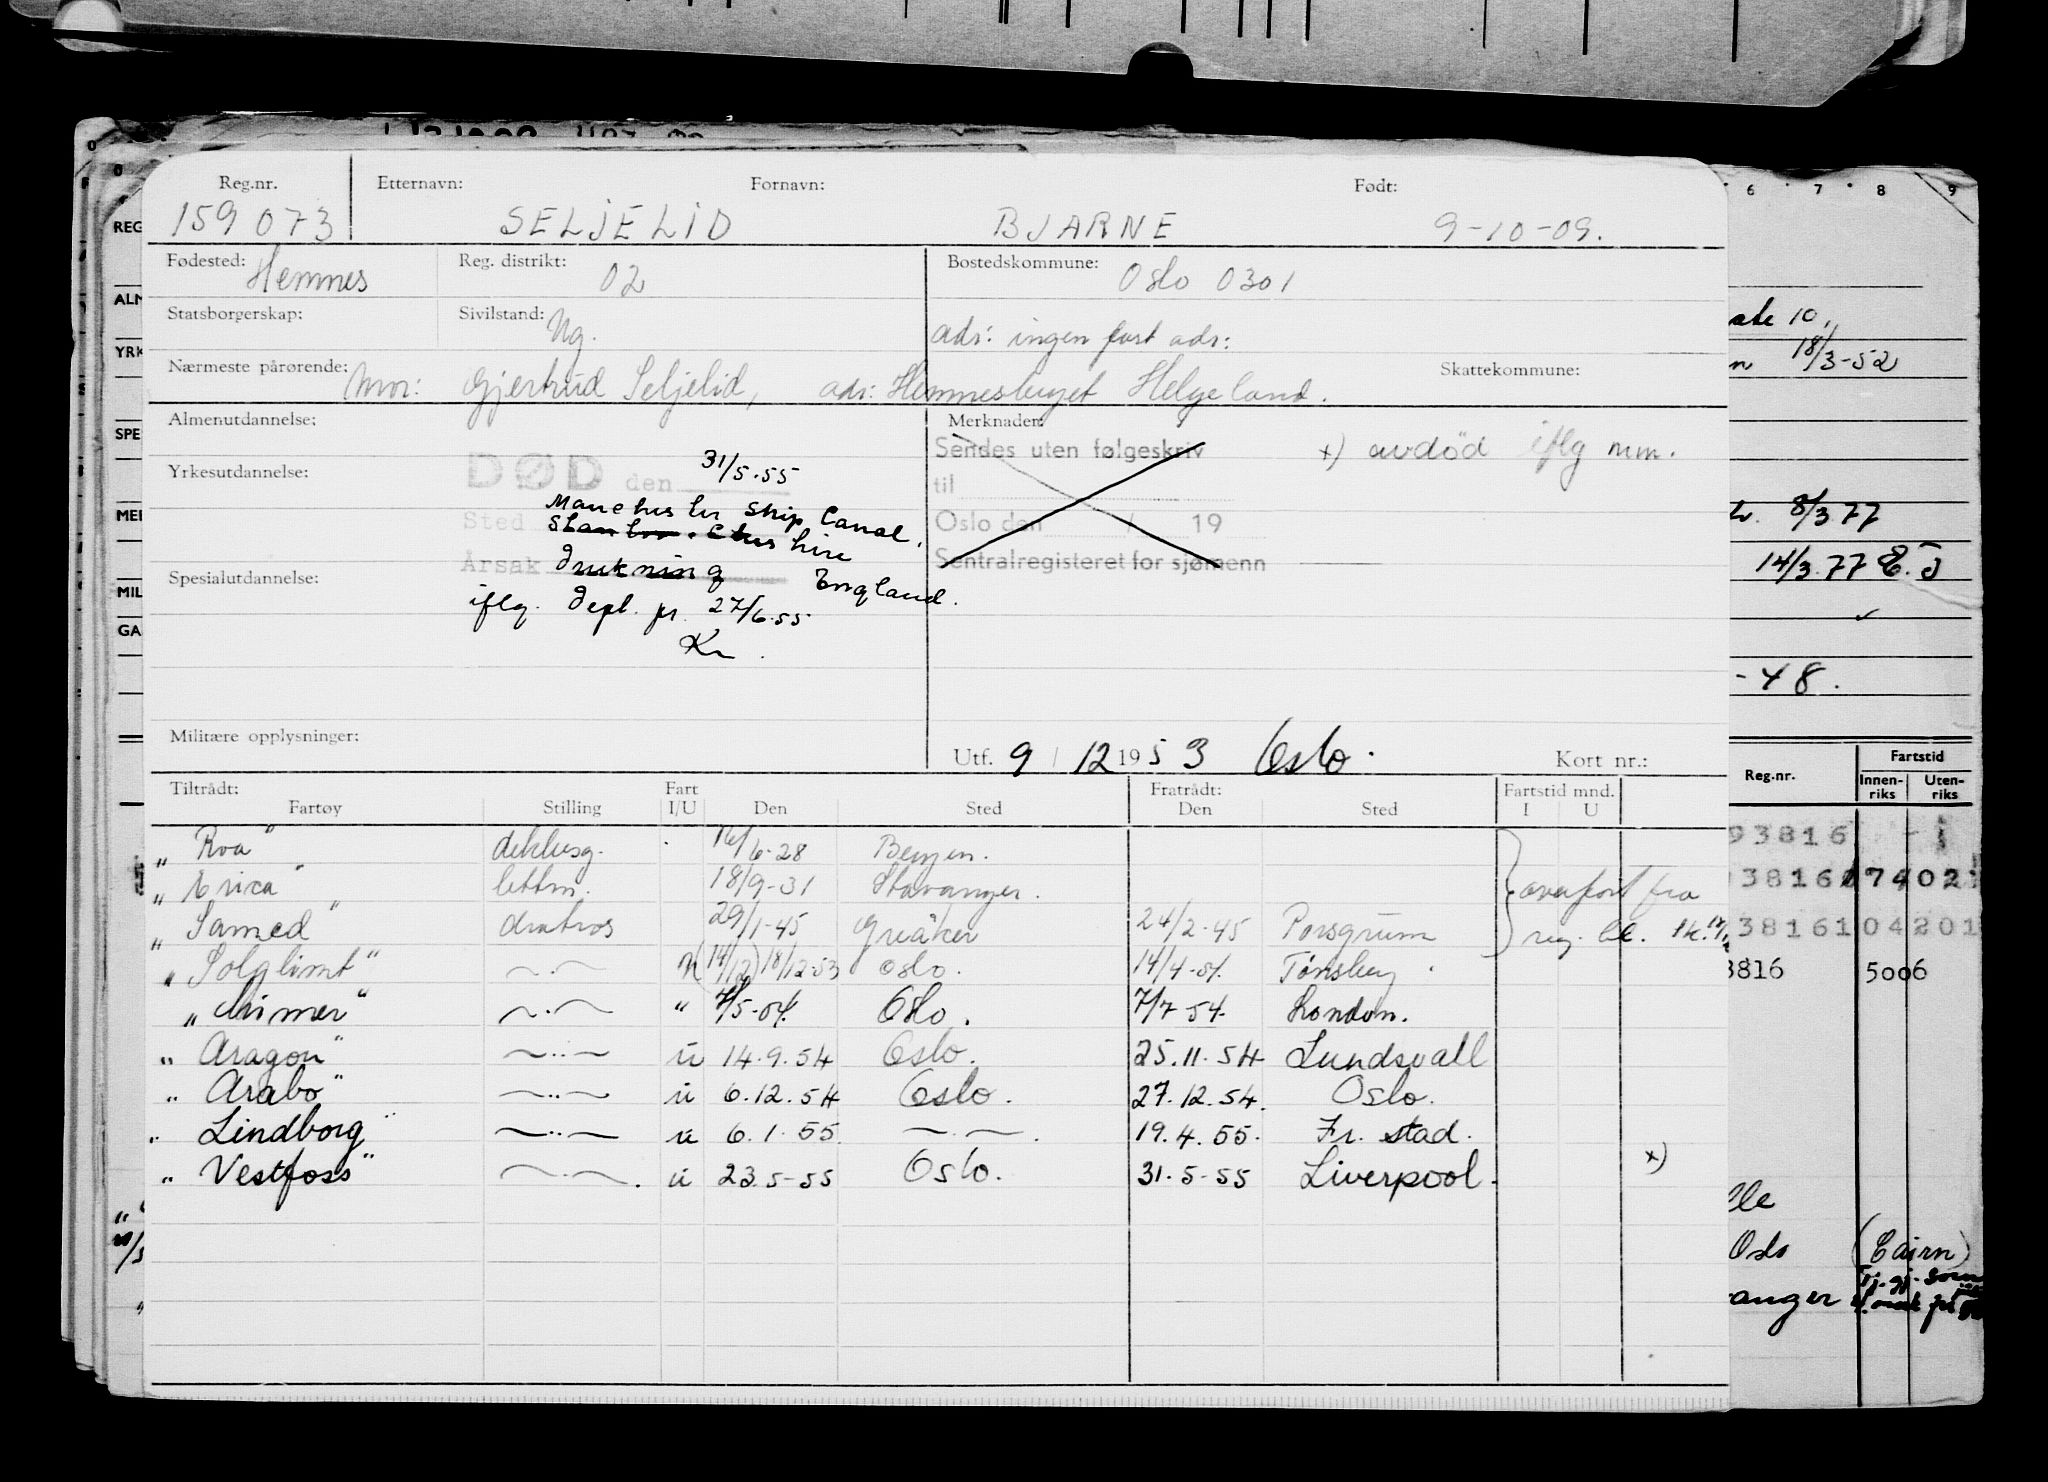 Reg.nr. Etternavn: Fornavn: Født:
159073 SELJELID BJARNE 9-10-09.
Fødested: Hemnes Reg. distrikt: 02 Bostedskommune: Oslo 0301
Statsborgerskap: Sivilstand: Ug. adr: ingen fast adr:
Nærmeste pårørende: Mor: Gjertrud Seljelid, adr: Hemnesberget Helgeland. Skattekommune:
Almenutdannelse: Merknader:
Sendes uten følgeskriv x) avdöd iflg mm.
Yrkesutdannelse: DØD den 31/5.55 til
Manchester Ship Canal,
Sted Oslo den / 19
Årsak drukning England. Sentralregisteret for sjømenn
Spesialutdannelse: iflg. Dept. pr. 27/6.55
Kr.
Militære opplysninger: Utf. 9 / 12 1953 Oslo. Kort nr.:
Tiltrådt: Fart Fratrådt: Fartstid mnd.
Fartøy Stilling I/U Den Sted Den Sted I U
„ Roa" dekksg. 16/6-28 Bergen.
„ Erica" lettm. 18/9-31 Stavanger. overført fra
„ Samed" matros 29/1-45 Greåker 24/2-45 Porsgrunn reg. bl.
„ Solglimt" (14/12) 18/12-53 Oslo. 14/4-54. Tønsberg.
„ Mimer" " 7/5-54. Oslo. 7/7 54. London.
„ Aragon" u 14.9.54 Oslo. 25.11.54 Sundsvall
„ Arabo" u 6.12.54 Oslo. 27.12.54. Oslo.
„ Lindborg" u 6.1.55. 19.4.55. Fr. stad.
„ Vestfoss" u 23.5-55 Oslo. 31.5-55 Liverpool. x)
REG
YRK
SPE
MIL
GA
6 7 8 9
10,
18/3-52
8/3 77
14/3.77 E.J
-48.
Reg.nr. Fartstid
Innen-riks Uten-riks
93816
3816 5006
Oslo (Cairn)
anger